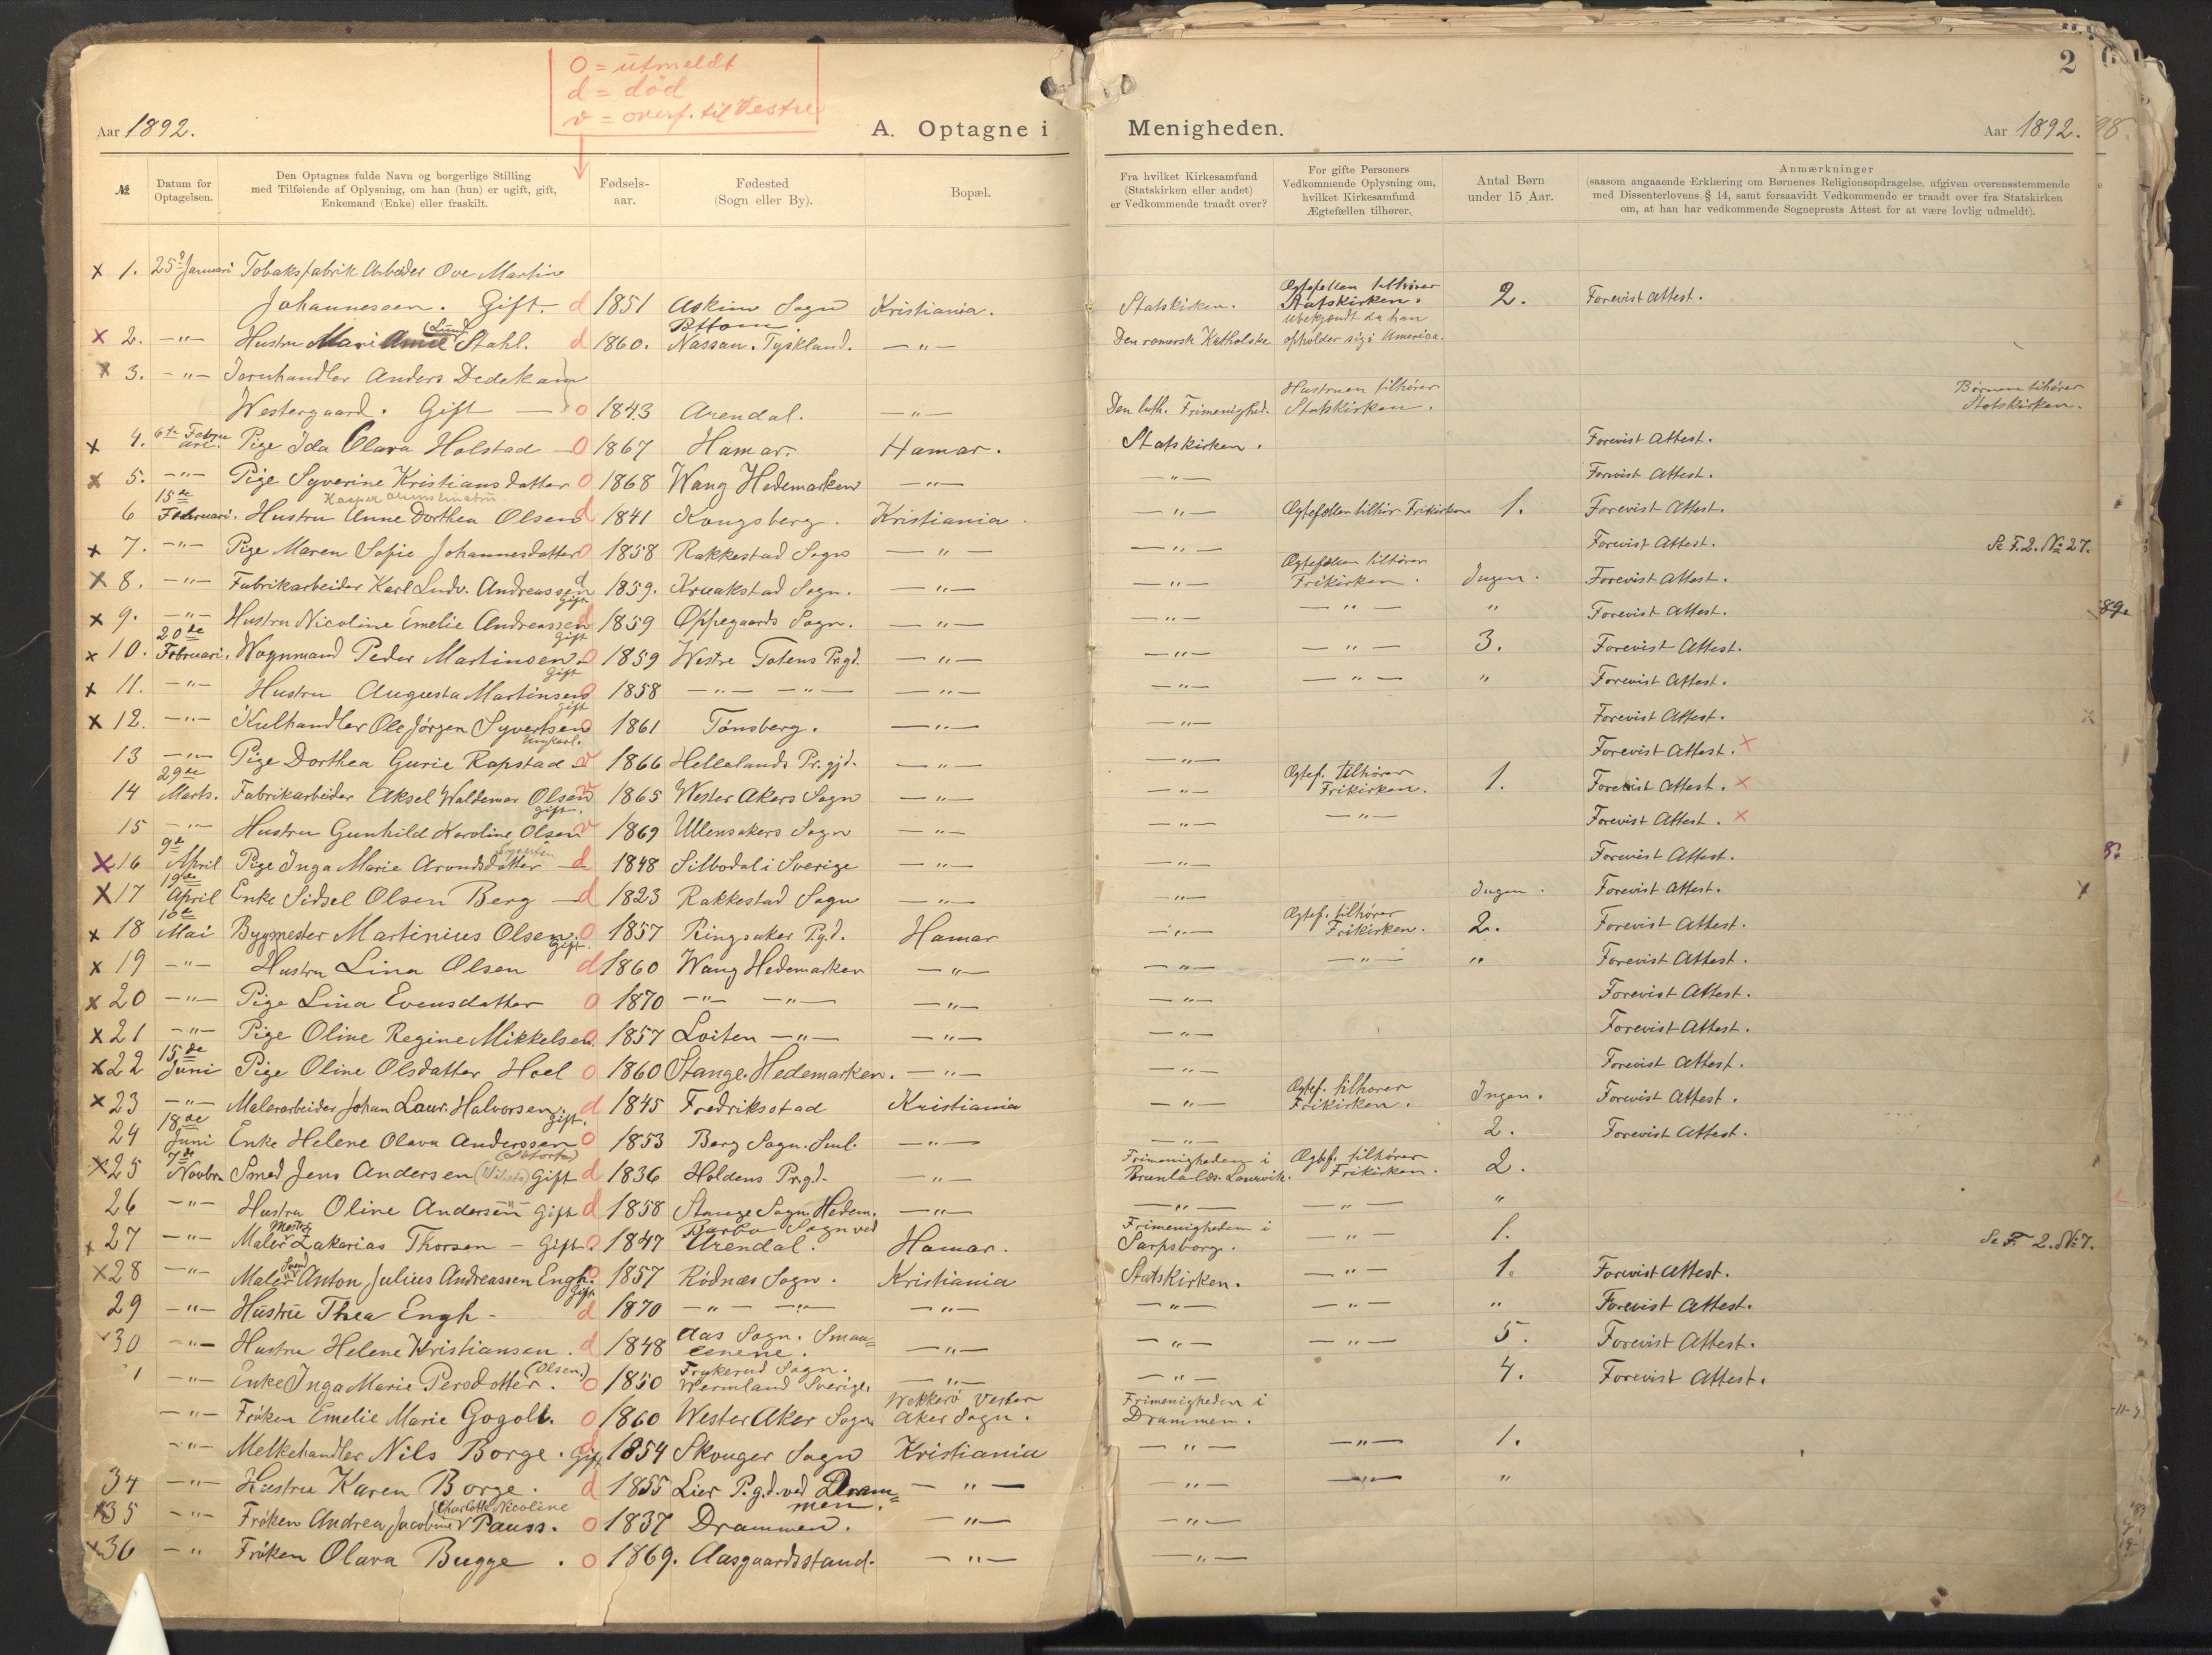 O = utmeldt
d = död
v = overf. til Vestre
Aar 1892.
A. Optagne i Menigheden.
2
Aar 1892.
№
Datum for Optagelsen.
Den Optagnes fulde Navn og borgerlige Stilling med Tilføiende af Oplysning, om han (hun) er ugift, gift, Enkemand (Enke) eller fraskilt.
Fødsels-aar.
Fødested (Sogn eller By).
Bopæl.
Fra hvilket Kirkesamfund (Statskirken eller andet) er Vedkommende traadt over?
For gifte Personers Vedkommende Oplysning om, hvilket Kirkesamfund Ægtefællen tilhører.
Antal Børn under 15 Aar.
Anmærkninger (saasom angaaende Erklæring om Børnenes Religionsopdragelse, afgiven overensstemmende med Dissenterlovens § 14, samt forsaavidt Vedkommende er traadt over fra Statskirken om, at han har vedkommende Sogneprests Attest for at være lovlig udmeldt).
x 1. 25de Januari Tobaksfabrik Arbeider Ove Martin
Johannessen. Gift. d 1851 Askim Sogn Kristiania. Statskirken. Ægtefellen tilhörer Statskirken. 2. Forevist Attest.
x 2. -"- Hustru Mari (Lund) Stahl. d 1860. Nassau. Tyskland. -"- Den romersk Katholske ubekjendt da han opholder sig i America.
x 3. -"- Jernhandler Anders Dedekam
Westergaard. Gift - o 1843 Arendal. -"- Den luth. Frimenighed. Hustruen tilhörer Statskirken. Börnene tihörer Statskirken.
x 4. 6te Februari. Pige Ida Olava Holstad - O 1867 Hamar. Hamar. Statskirken. Forevist Attest.
x 5. -"- Pige Syverine Kristiansdatter O 1868 Wang Hedemarken -"- -"- Forevist Attest.
6 15de Februari. Hustru Anne Dorthea Olsen d 1841 Kongsberg. Kristiania. -"- Ægtefællen tilhör Frikirken 1. Forevist Attest.
x 7. -"- Pige Maren Sofie Johannesdatter O 1858 Rakkestad Sogn -"- -"- Forevist Attest. Se F. 2. № 27.
x 8. -"- Fabrikarbeider Karl Ludv. Andreassen Gift d 1859. Kraakstad Sogn. -"- -"- Ægtefællen tilhörer Frikirken. Ingen. Forevist Attest.
x 9. -"- Hustru Nicoline Emelie Andreassen Gift d 1859 Oppegaards Sogn. -"- -"- -"- " Forevist Attest.
x 10. 20de Februari. Wognmand Peder Martinsen Gift O 1859 Westre Totens Prgd. -"- -"- -"- 3. Forevist Attest.
x 11. -"- Hustru Augusta Martinsen Gift O 1858 -"- -"- -"- -"- -"- " Forevist Attest.
x 12. -"- Kulhandler Ole Jörgen Syvertsen Ungkarl. O 1861 Tönsberg. -"- -"- Forevist Attest.
13 -"- Pige Dorthea Gurie Rapstad v 1866 Hellelands Pr.gjd. -"- -"- Forevist Attest. x
14 29de Marts. Fabrikarbeider Aksel Waldemar Olsen Gift. v 1865 Wester Akers Sogn -"- -"- Ægtef. tilhörer Frikirken. 1. Forevist Attest. x
15 -"- Hustru Gunhild Karoline Olsen v 1869 Ullensakers Sogn -"- -"- -"- Forevist Attest. x
x 16 9de April Pige Inga Marie Arondsdatter - d 1848 Silbodal i Sverige -"- -"- Forevist Attest.
x 17 19de April Enke Sidsel Olsen Berg - d 1823 Rakkestad Sogn -"- -"- Ingen. Forevist Attest.
x 18 10de Mai Bygmester Martinius Olsen. Gift. O 1857 Ringsaker Pgd. Hamar -"- Ægtef. tilhörer Frikirken. 2. Forevist Attest.
x 19 -"- Hustru Lina Olsen d 1860 Wang Hedemarken -"- -"- -"- " Forevist Attest.
x 20 -"- Pige Lina Evensdatter O 1870 -"- -"- -"- -"- Forevist Attest.
x 21 -"- Pige Oline Regine Mikkelsen O 1857 Loiten -"- -"- -"- Forevist Attest.
x 22 15de Juni Pige Oline Olsdatter Hoel O 1860 Stange. Hedemarken. -"- -"- Forevist Attest.
x 23 -"- Malerarbeider Johan Laur. Halvorsen. Gift. d 1845 Fredriksstad Kristiania -"- Ægtef. tilhorer Frikirken. Ingen. Forevist Attest.
24 18de Juni Enke Helene Olava Anderssen O 1853 Berg Sogn. Sml. -"- -"- 2. Forevist Attest.
x 25 7de Novbr Smed Jens Andersen Gift d 1836 Holdens Prgd. -"- Frimenigheden i Brunlanæs. Laurvik. Ægtef. tilhörer Frikirken. 2.
26 -"- Hustru Oline Andersen Gift d 1858 Stange Sogn. Hedem. -"- -"- -"- "
x 27 -"- Malermester Zakarias Thorsen - Gift. O 1847 Barbo Sogn ved Arendal. Hamar. Frimenigheden i Sarpsborg. -"- 1. Se F. 2. № 7.
x 28 -"- Maler Svend Anton Julius Andreassen Engh. Gift O 1857 Rödnæs Sogn. Kristiania Statskirken. -"- 1. Forevist Attest.
29 -"- Hustru Thea Engh - d 1870 -"- -"- -"- -"- -"- " Forevist Attest.
x 30 -"- Hustru Helene Kristiansen. d 1848 Aas Sogn. Smaalenene. -"- -"- -"- 5. Forevist Attest.
1 -"- Enke Inga Marie Persdotter. (Olsen.) O 1850 Frykerud Sogn. Wermland Sverige. -"- -"- 4. Forevist Attest.
-"- Fröken Emelie Marie Gogoll. O 1860 Wester Aker Sogn Wækkerö Vester Aker Sogn. Frimenigheden i Drammen.
-"- Melkehandler Nils Borge. Gift d 1854 Skouger Sogn Kristiania -"- -"- 1.
34 -"- Hustru Karen Borge. d 1855 Lier P.g.d. ved Drammen. -"- -"- -"- "
x 35 -"- Fröken Andrea Jacobine Charlotte Nicoline Pauss. O 1837 Drammen. -"- -"-
x 36 -" Fröken Olava Bugge. O 1869. Aasgaardsstrand. -"- -"-